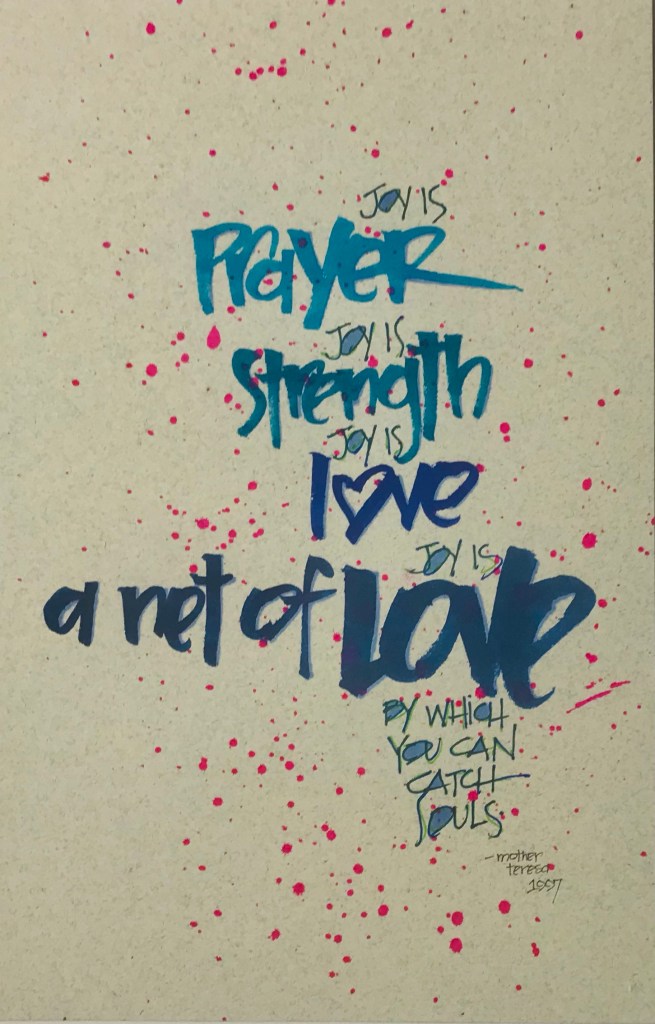 JOY IS
PRayeR
JOY IS
Strength
JOY IS
love
JOY IS
a net of Love
BY WHICH
YOU CAN
CATCH
SOULS
-mother
teresa
1997